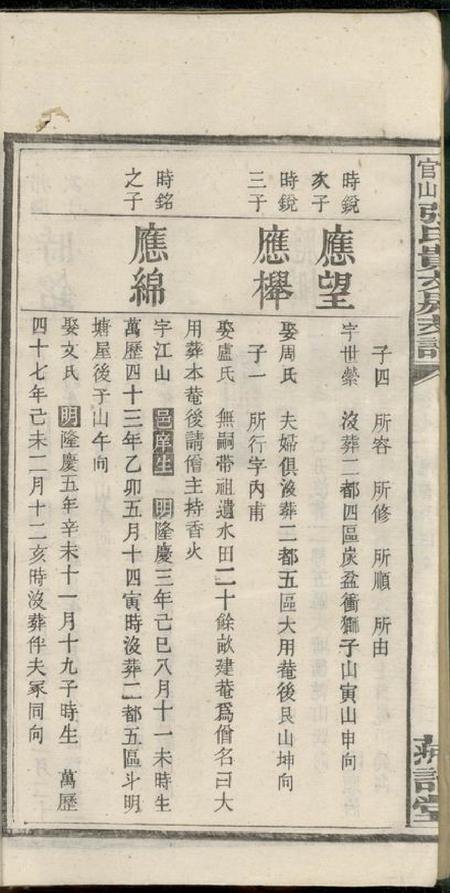 官山張氏貴文房支譜
燕詒堂
子四 所容 所修 所順 所由
時銳
次子
應望
字世縈 沒葬二都四區炭盆衝獅子山寅山申向
時銳
三子
應舉
娶周氏 夫婦俱沒葬二都五區大用菴後艮山坤向
子一 所行字內甫
娶盧氏 無嗣帶祖遺水田二十餘畝建菴爲僧名曰大
用葬本菴後請僧主持香火
時銘
之子
應綿
字江山 邑庠生 明隆慶三年己巳八月十一未時生
萬歷四十三年乙卯五月十四寅時沒葬二都五區斗明
塘屋後子山午向
娶文氏 明隆慶五年辛未十一月十九子時生 萬歷
四十七年己未二月十二亥時沒葬伴夫冢同向